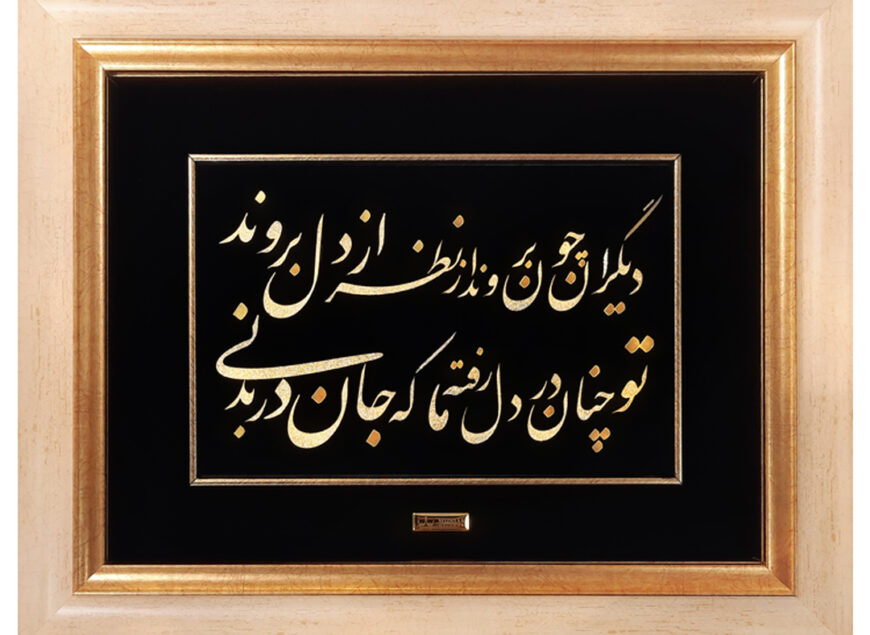 دیگران چون بروند از نظر از دل بروند
تو چنان در دل رفته ما که جان در بدنی